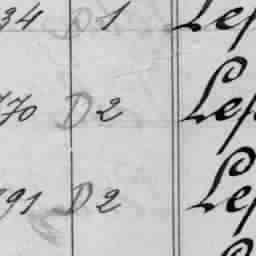 34 D 1 Lep
770 D 2 Lep
791 D 2 Lep